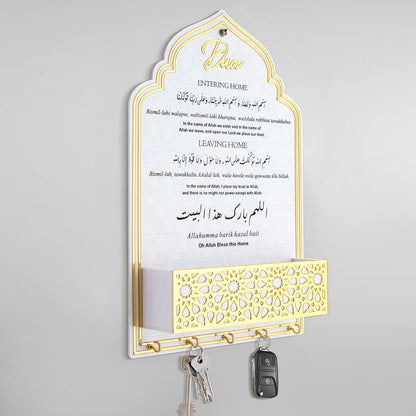 Dua
ENTERING HOME
Bismil-lahi walajna, wabismil-lahi kharajna, waAala rabbina tawakkalna.
In the name of Allah we enter and in the name of
Allah we leave, and upon our Lord we place our trust.
LEAVING HOME
بِسْمِ اللهِ تَوَكَّلْتُ عَلَى اللهِ، وَلَا حَوْلَ وَلَا قُوَّةَ إِلَّا بِاللهِ
Bismil-lah, tawakkaltu AAalal-lah, wala hawla wala quwwata illa billah.
In the name of Allah, I place my trust in Allah,
and there is no might nor power except with Allah.
اللهم بارك هذا البيت
Allahumma barik hazal bait
Oh Allah Bless this Home